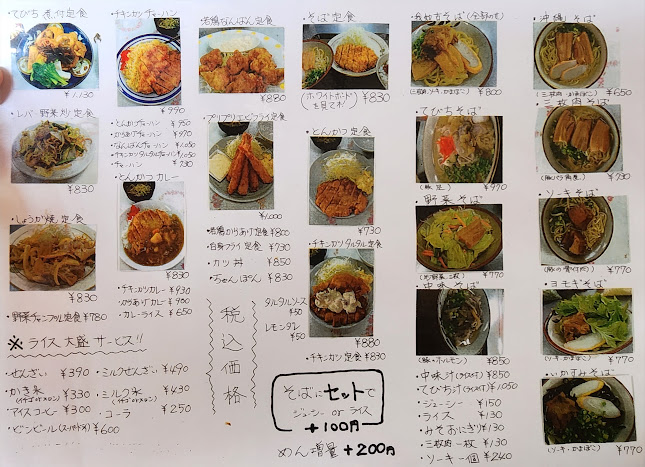 ・てびち煮付定食
¥1,130
・レバー野菜炒定食
¥830
・しょうが焼定食
¥830
・野菜チャンプル定食 ¥780
※ ライス大盛サービス!!
・ぜんざい ¥390
・ミルクぜんざい ¥490
・かき氷 ¥330
(イチゴ or メロン)
・ミルク氷 ¥430
(イチゴ or メロン)
・アイスコーヒー ¥300
・コーラ ¥250
・ビンビール(スーパードライ) ¥600
・チキンカツチャーハン
¥990
・とんかつチャーハン ¥950
・からあげチャーハン ¥970
・なんばんチャーハン ¥1,050
・チキンカツタルタルチャーハン ¥1,050
・チャーハン ¥730
・とんかつカレー
¥830
・チキンカツカレー ¥930
・からあげカレー ¥900
・カレーライス ¥650
・若鶏なんばん定食
¥880
・プリプリエビフライ定食
¥1,000
・若鶏からあげ定食 ¥800
・白身フライ定食 ¥730
・カツ丼 ¥850
・ちゃんぽん ¥830
税込価格
タルタルソース ¥50
レモンダレ ¥50
・そば定食
(ホワイトボードを見てネ!) ¥830
・とんかつ定食
¥730
・チキンカツタルタル定食
¥880
・チキンカツ定食 ¥830
そばにセットで
ジューシー or ライス
+100円
めん増量 +200円
そば(全部のせ)
(三枚肉・ソーキ・かまぼこ) ¥800
・てびちそば
(豚足) ¥970
・野菜そば
¥770
・中味そば
(豚・ホルモン) ¥850
・中味汁(ライス付) ¥850
・てびち汁(ライス付) ¥1,050
・ジューシー ¥150
・ライス ¥130
・みそおにぎり ¥130
・三枚肉一枚 ¥130
・ソーキ一個 ¥240
・沖縄そば
(三枚肉・かまぼこ) ¥650
・三枚肉そば
(豚バラ角煮) ¥730
・ソーキそば
¥770
・ヨモギそば
(ソーキ・かまぼこ) ¥770
・いかすみそば
(ソーキ・かまぼこ) ¥770